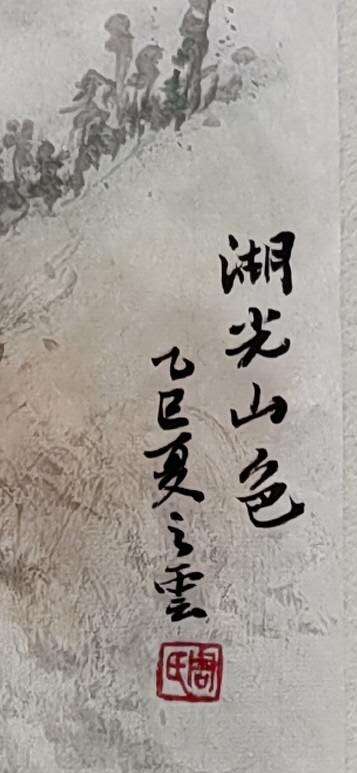 湖光山色
乙巳夏之雲
周氏